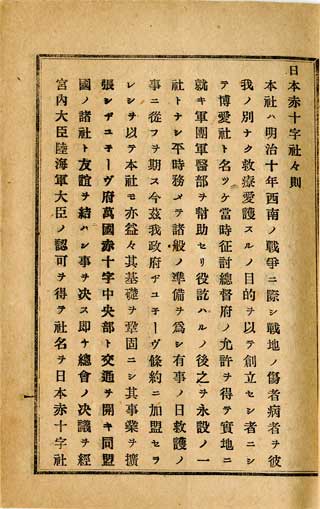 日本赤十字社々則
本社ハ明治十年西南ノ戰爭ニ際シ戰地ノ傷者病者ヲ彼
我ノ別ナク救療愛護スルノ目的ヲ以テ創立セシ者ニシ
テ博愛社ト名ツケ當時征討總督府ノ允許ヲ得テ實地ニ
就キ軍團軍醫部ヲ幇助セリ役訖ハルノ後之ヲ永設ノ一
社トナシ平時務メテ諸般ノ準備ヲ爲シ有事ノ日救護ノ
事ニ從フヲ期ス今茲我政府ヂユ子ーヴ條約ニ加盟セラ
レシヲ以テ本社モ亦益々其基礎ヲ鞏固ニシ其事業ヲ擴
張シヂユ子ーヴ府萬國赤十字中央部ト交通ヲ開キ同盟
國ノ諸社ト友誼ヲ結ハン事ヲ決ス即チ總會ノ決議ヲ經
宮内大臣陸海軍大臣ノ認可ヲ得テ社名ヲ日本赤十字社